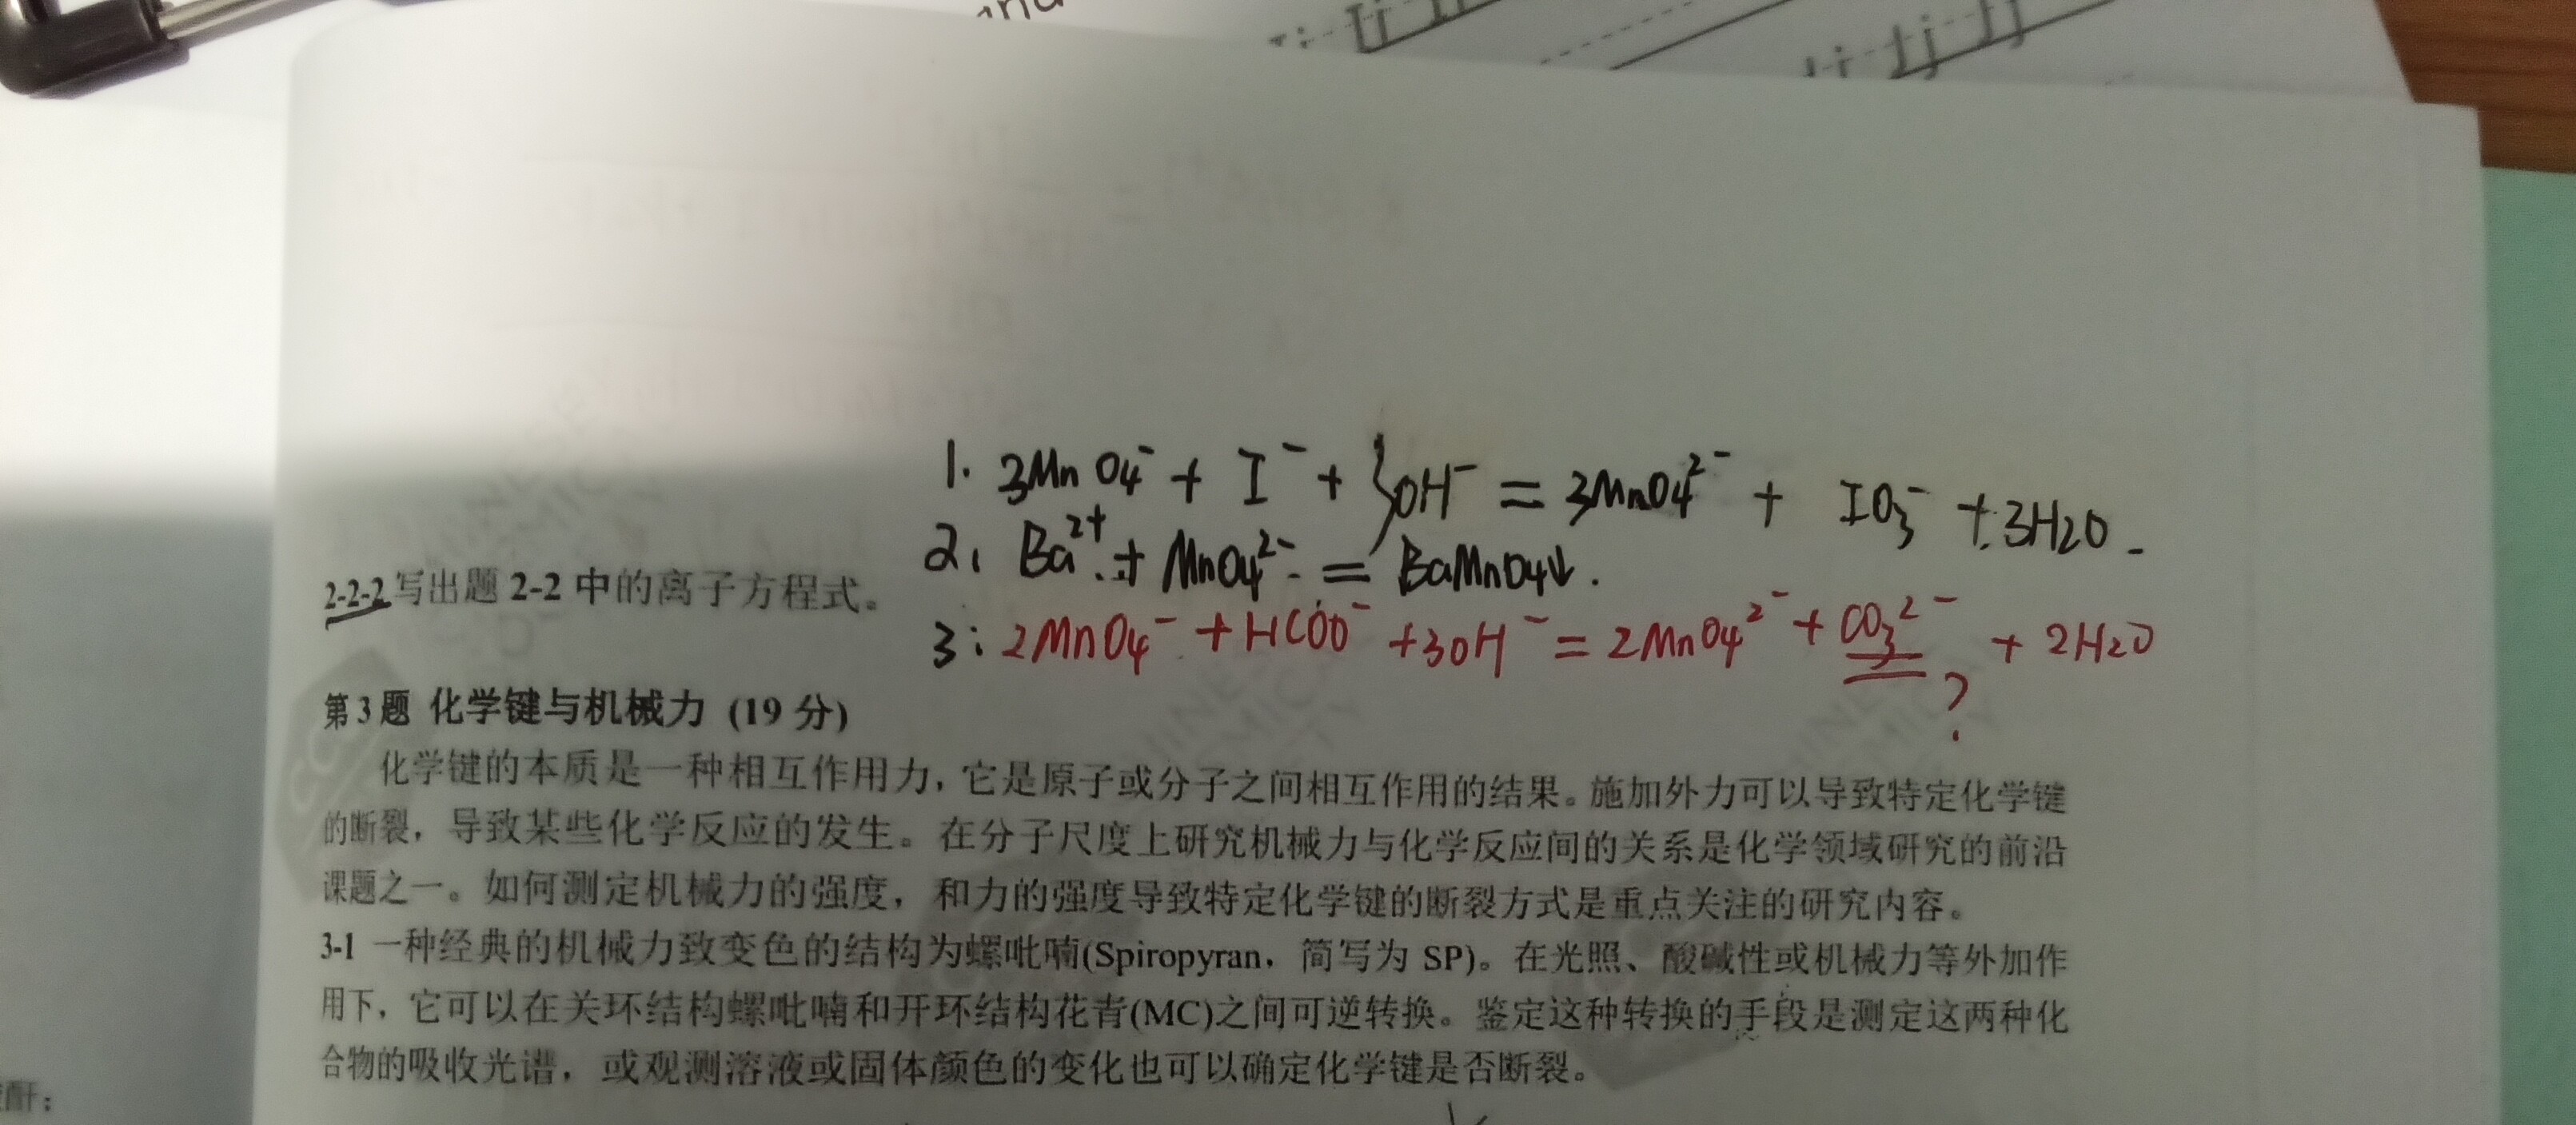 1. 3MnO4⁻ + I⁻ + OH⁻ = 3MnO4²⁻ + IO3⁻ + 3H2O.
2. Ba²⁺ + MnO4²⁻ = BaMnO4↓.
2-2-2 写出题 2-2 中的离子方程式。
3: 2MnO4⁻ + HCOO⁻ + 3OH⁻ = 2MnO4²⁻ + CO3²⁻ + 2H2O
?
第3题 化学键与机械力 (19 分)
化学键的本质是一种相互作用力，它是原子或分子之间相互作用的结果。施加外力可以导致特定化学键
的断裂，导致某些化学反应的发生。在分子尺度上研究机械力与化学反应间的关系是化学领域研究的前沿
课题之一。如何测定机械力的强度，和力的强度导致特定化学键的断裂方式是重点关注的研究内容。
3-1 一种经典的机械力致变色的结构为螺吡喃(Spiropyran，简写为 SP)。在光照、酸碱性或机械力等外加作
用下，它可以在关环结构螺吡喃和开环结构花青(MC)之间可逆转换。鉴定这种转换的手段是测定这两种化
合物的吸收光谱，或观测溶液或固体颜色的变化也可以确定化学键是否断裂。
酐：